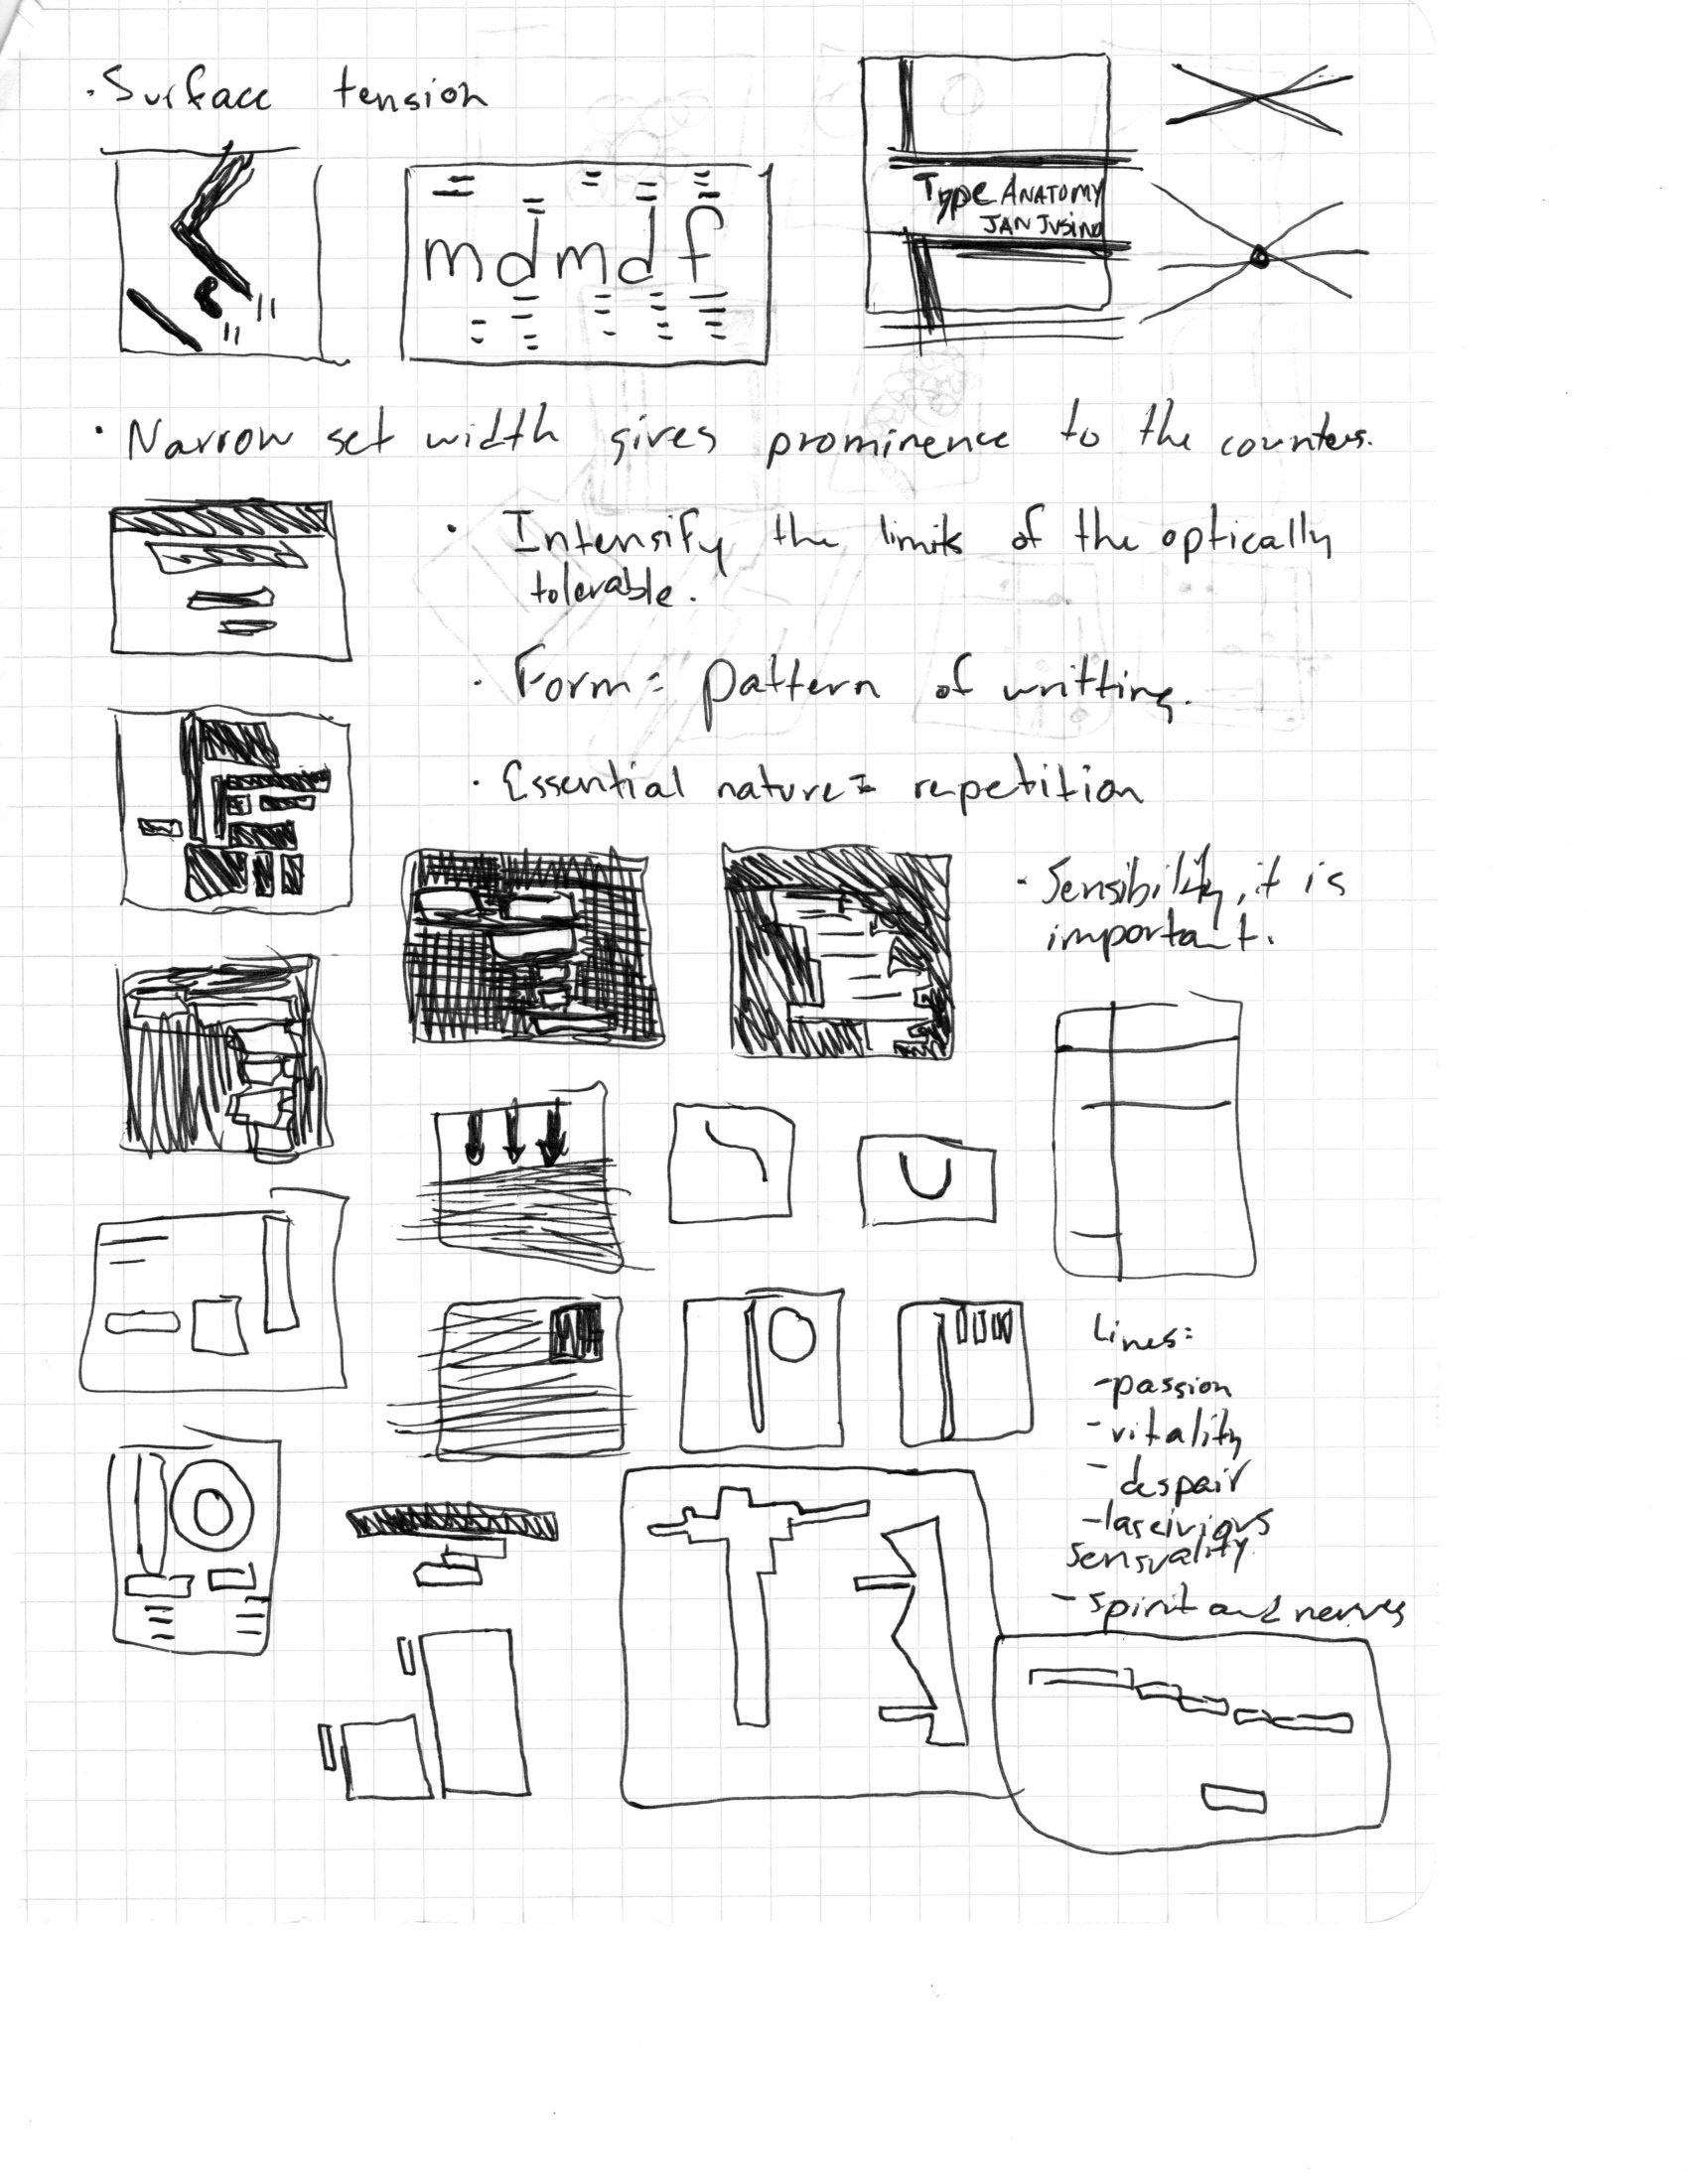 · Surface tension
mdmdf
Type ANATOMY
JAN JUSINO
· Narrow set width gives prominence to the counters.
· Intensify the limits of the optically
tolerable.
· Form= pattern of writting.
· Essential nature= repetition
· Sensibility, it is
important.
Lines=
-passion
-vitality
- despair
-lascivious
sensuality.
- spirit and nerves